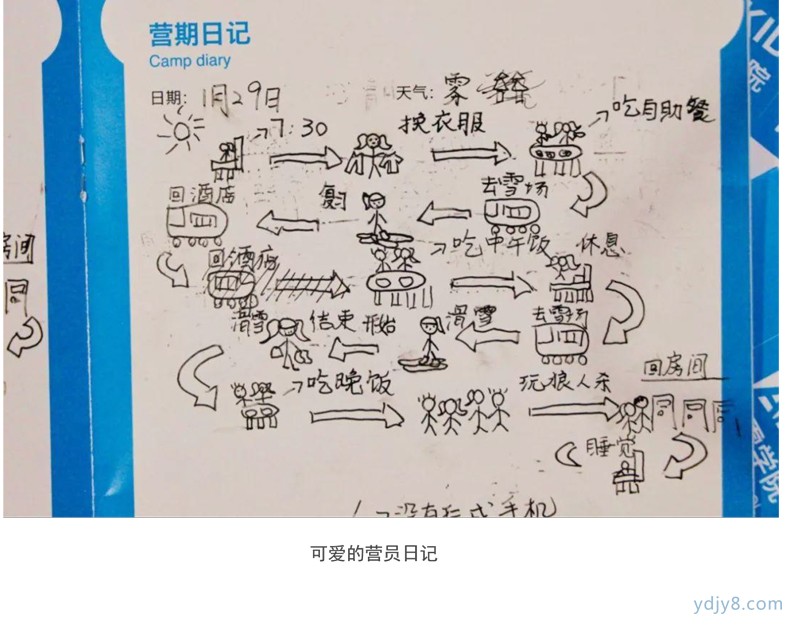 营期日记
Camp diary
日期: 1月29日 天气: 雾
7:30 换衣服 吃自助餐
回酒店 复习 去雪场
房间
回酒店 吃中午饭 休息
滑雪 结束 开始 滑雪 去雪场
吃晚饭 玩狼人杀 回房间
睡觉
手机
院
学院
可爱的营员日记
ydjy8.com